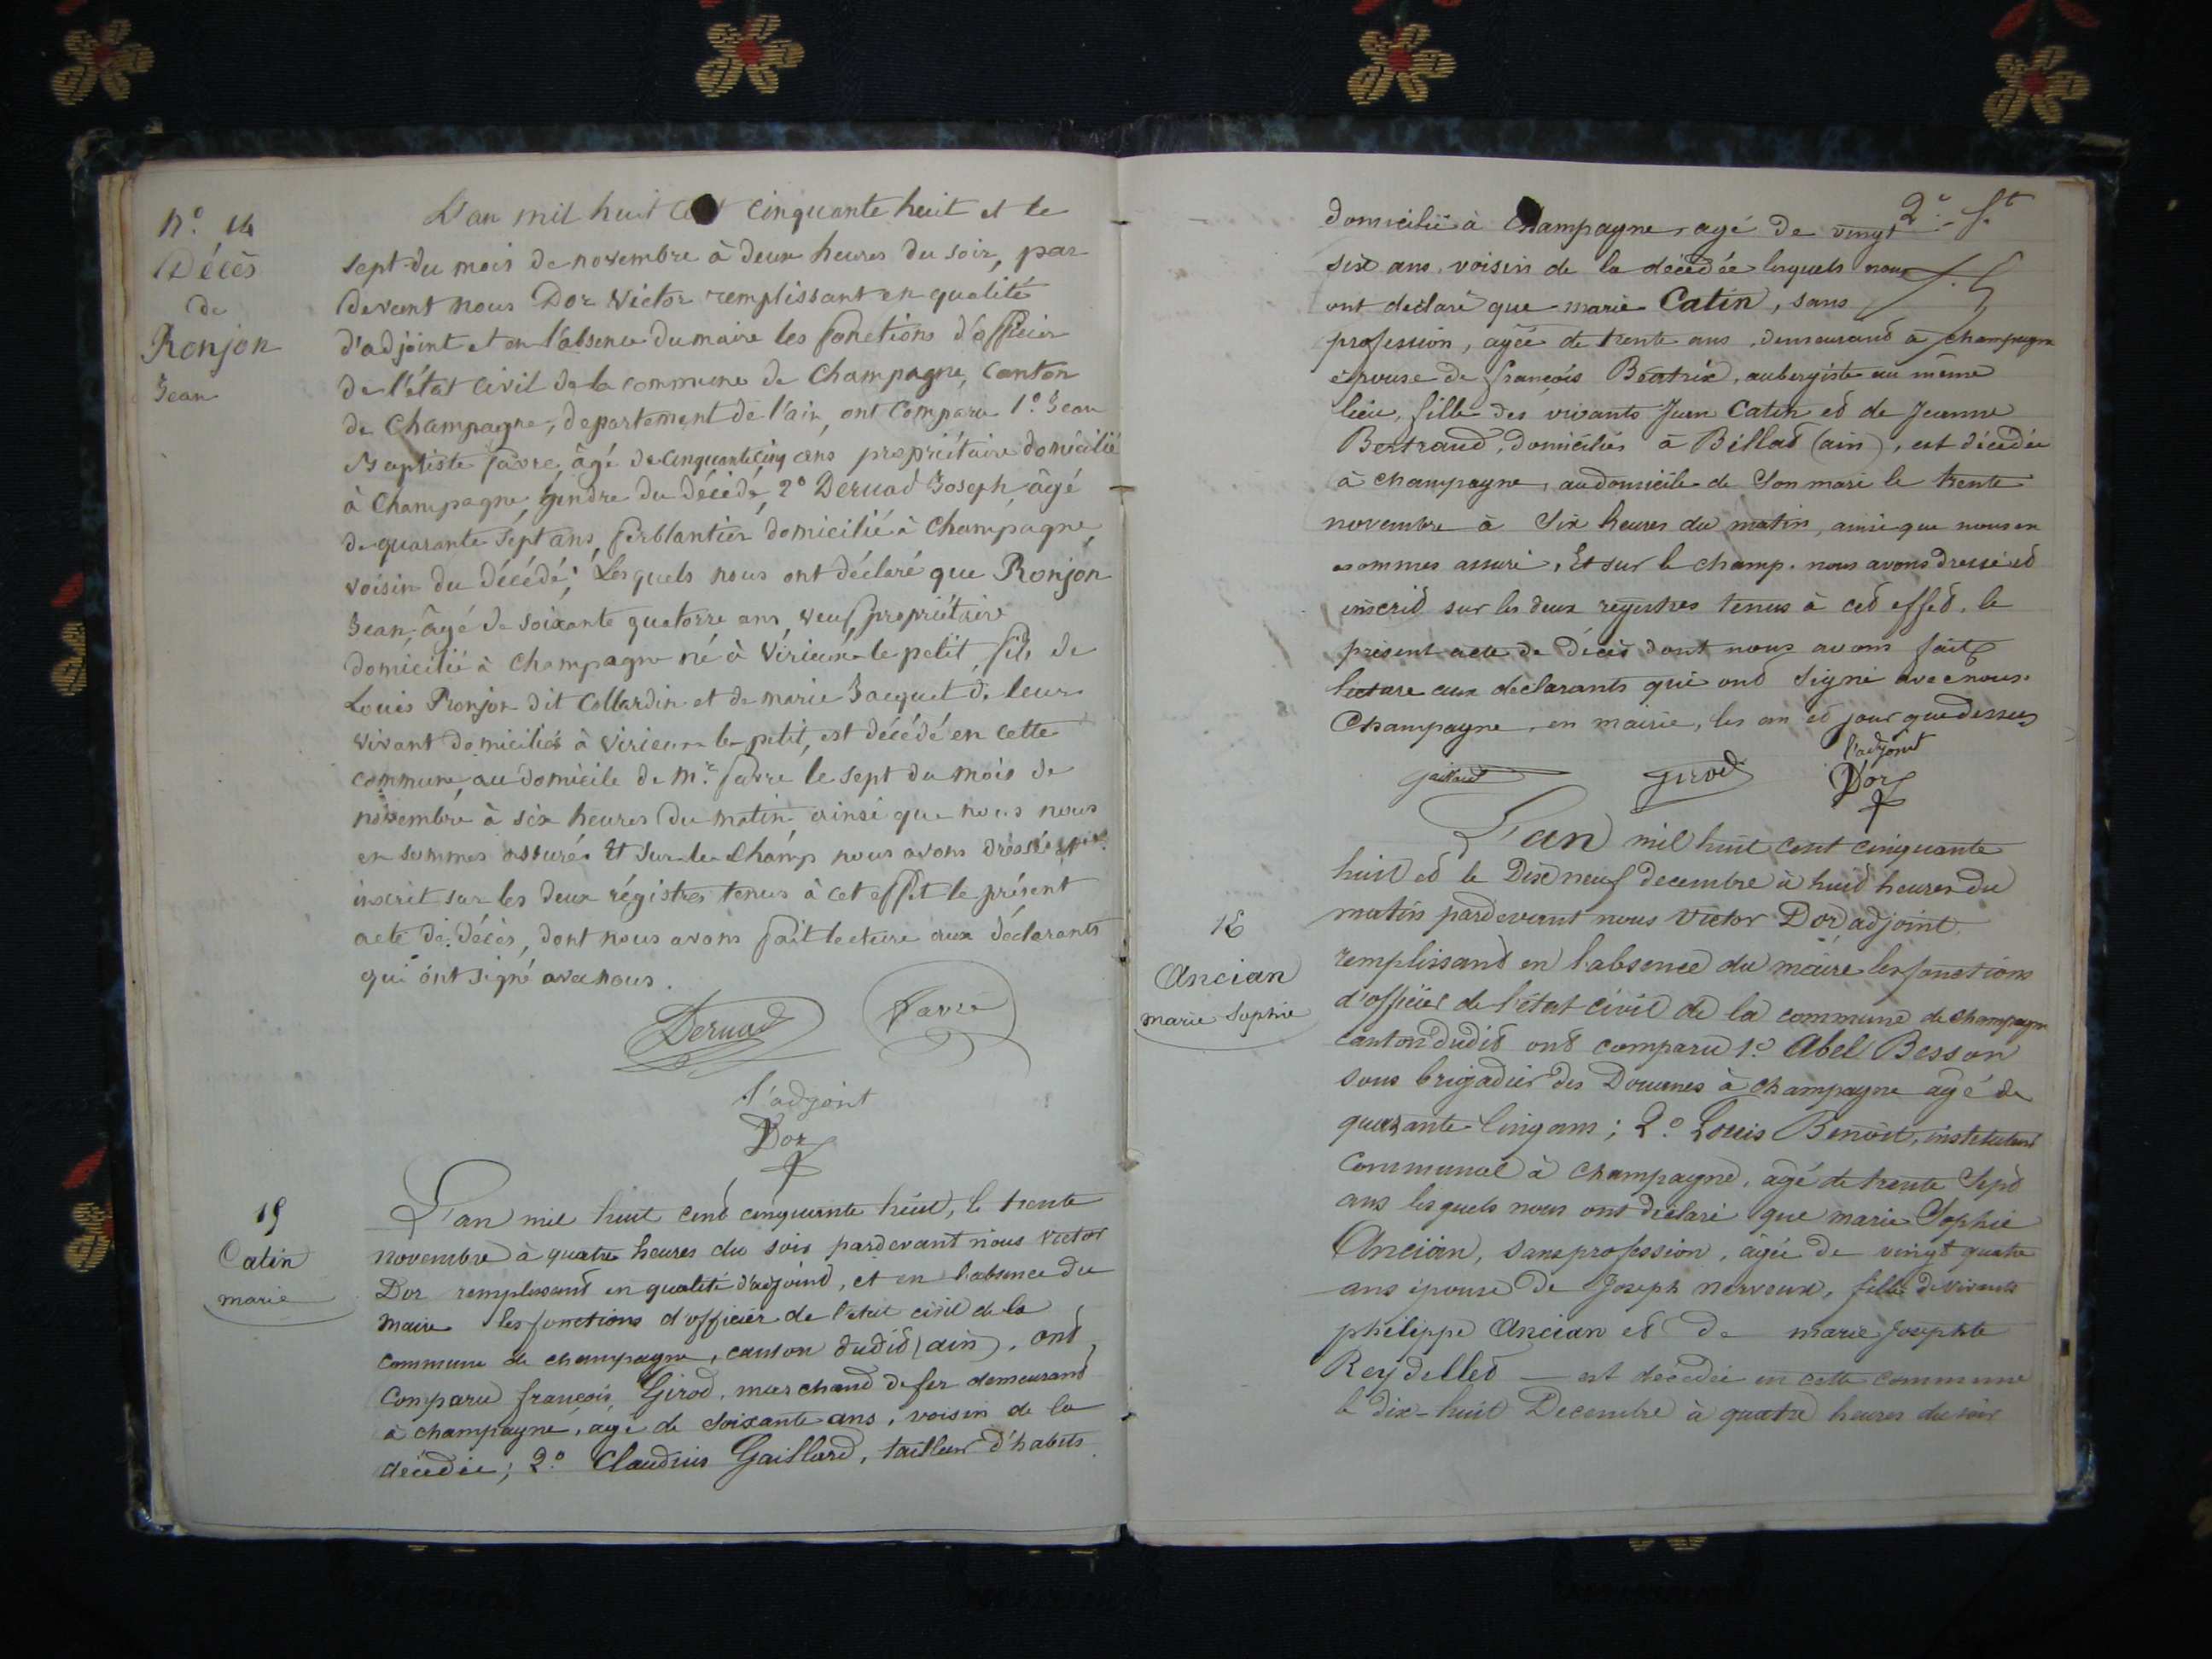 N.º 14
Décès
de
Ronjon
Jean
L'an mil huit cent cinquante huit et le
sept du mois de novembre à deux heures du soir, par
devant nous Dor Victor remplissant en qualité
d'adjoint et en l'absence du maire les fonctions d'officier
de l'état civil de la commune de Champagne, Canton
de Champagne, departement de l'ain, ont comparu 1º Jean
Baptiste favre, âgé de cinquante cinq ans propriétaire domicilié
à Champagne, gendre du décédé, 2º Deruad Joseph, âgé
de quarante sept ans, ferblantier domicilié à Champagne,
voisin du décédé; Lesquels nous ont déclaré que Ronjon
Jean, âgé de soixante quatorze ans, veuf, propriétaire
domicilié à Champagne né à Virieux le petit, fils de
Louis Ronjon dit Collardin et de marie Jacquet de leur
vivant domiciliés à Virieux le petit, est décédé en cette
commune, au domicile de Mr. favre le sept du mois de
novembre à six heures du matin ainsi que nous nous
en sommes assurés Et sur le champ nous avons dressé
inscrit sur les deux régistres tenus à cet effet le présent
acte de décès, dont nous avons fait lecture aux déclarants
qui ont signé avec nous.
Deruad Favre
l'adjoint
Dor
15
Catin
marie
L'an mil huit cent cinquante huit, le trente
novembre à quatre heures du soir pardevant nous victor
Dor remplissant en qualité d'adjoint, et en l'absence du
maire les fonctions d'officier de l'état civil de la
commune de champagne, canton dudit (ain), ont
comparu françois Girod, marchand de fer demeurant
à champagne, agé de soixante ans, voisin de la
décédée; 2º Claudius Gaillard, tailleur d'habits
2e. ft
domicilié à Champagne, agé de vingt
six ans, voisin de la décédée lesquels nous
ont déclaré que marie Catin, sans
profession, agée de trente ans, demeurant à champagne
épouse de françois Béatrix, aubergiste au même
lieu, fille des vivants Jean Catin et de Jeanne
Bertrand, domiciliés à Billat (ain), est décédée
à champagne, au domicile de Son mari le trente
novembre à Six heures du matin, ainsi que nous en
sommes assuré, Et sur le champ nous avons dressé et
inscrit sur les deux registres tenus à cet effet, le
présent acte de décès dont nous avons fait
lecture aux déclarants qui ont signé avec nous.
Champagne, en mairie, les an et jour que dessus
l'adjoint
Gaillard Girod Dor
16
Ancian
marie Sophie
L'an mil huit cent cinquante
huit et le Dix neuf decembre à huit heures du
matin pardevant nous Victor Dor adjoint
remplissant en l'absence du maire les fonctions
d'officier de l'état civil de la commune de champagne
canton dudit ont comparu 1º Abel Besson
sous brigadier des Douanes à champagne agé de
quarante-Cinq ans; 2º Louis Benoit, instituteur
Communal à Champagne, agé de trente Sept
ans lesquels nous ont déclaré que marie Sophie
Ancian, sans profession, agée de vingt quatre
ans épouse de Joseph nerveux, fille de vivants
philippe Ancian et de marie Josephte
Reydellet — est décédée en cette commune
le dix-huit Decembre à quatre heures du soir